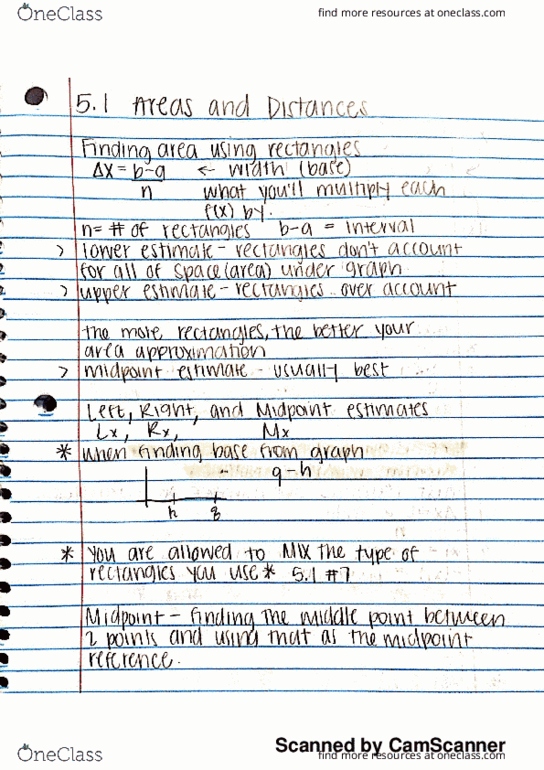 OneClass
find more resources at oneclass.com
5.1 Areas and Distances
Finding area using rectangles
Δx = b-a ← width (base)
n what you'll multiply each
f(x) by.
n= # of rectangles b-a = interval
> lower estimate - rectangles don't account
for all of space (area) under graph
> upper estimate - rectangles over account
the more rectangles, the better your
area approximation
> midpoint estimate - usually best
Left, Right, and Midpoint estimates
Lx, Rx, Mx
* when finding base from graph
g-h
h g
* You are allowed to MIX the type of
rectangles you use * 5.1 #7
Midpoint - finding the middle point between
2 points and using that as the midpoint
reference.
Scanned by CamScanner
OneClass
find more resources at oneclass.com